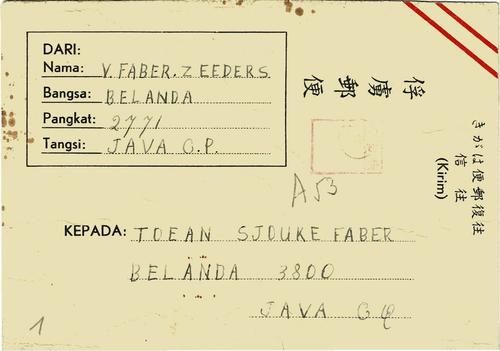 DARI:
Nama: V. FABER. ZEEDERS
Bangsa: BELANDA
Pangkat: 2771
Tangsi: JAVA O.P.
俘虜郵便
A53
きがは便郵復往
信往
(Kirim)
KEPADA: TOEAN SJOUKE FABER
BELANDA 3800
JAVA
1